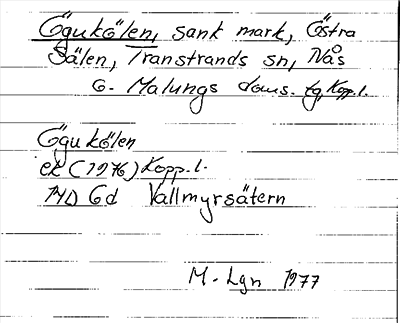 Ögukölen, sank mark, Östra
Sälen, Transtrands sn, Nås
o. Malungs doms. tg, Kopp.l.
Ögukölen
ek (1976) Kopp.l.
14D 6d Vallmyrsätern
M. Lgn 1977